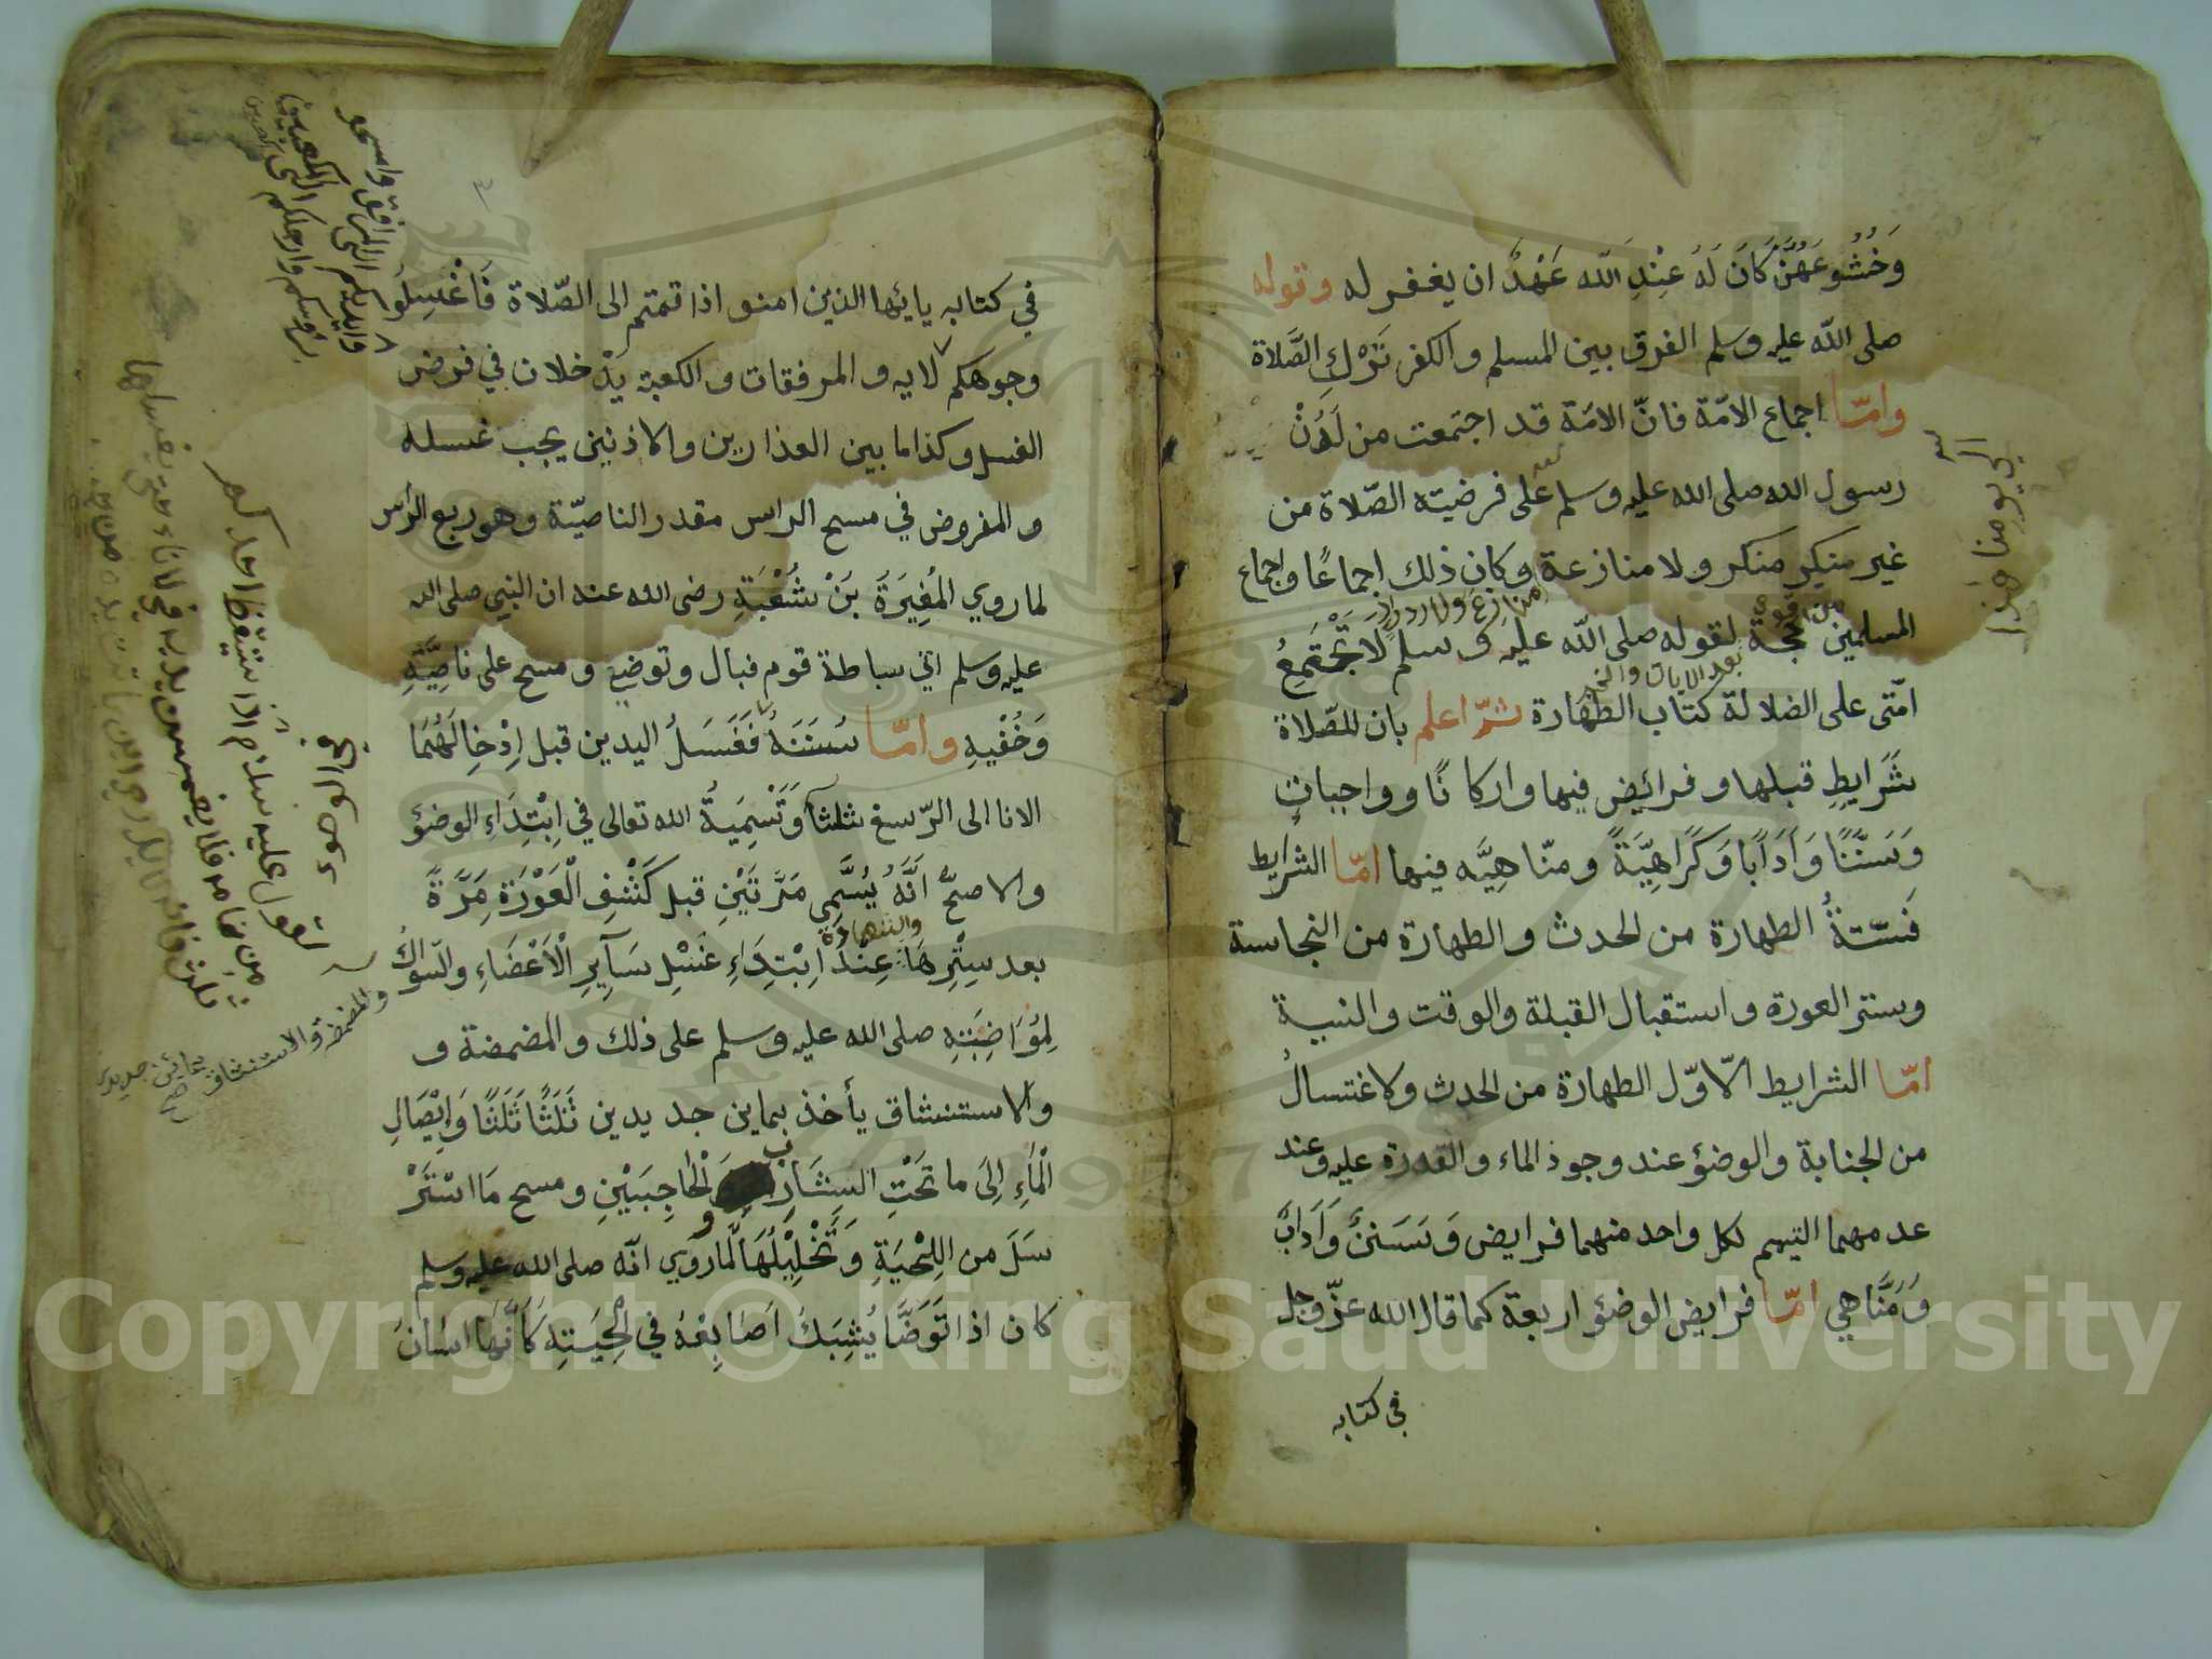 وَخُشُوعَهُنَّ كَانَ لَهُ عِنْدِ اللّه عَهْدٌ ان يغفر له وقوله
صلى اللّه عليه وسلم الفرق بين المسلم والكفر تَرْكِ الصَّلاة
وامّا اجماع الامّة فانّ الامّة قد اجتمعت من لَدُنْ
رسول الله صلى الله عليه وسلم على فرضيته الصّلاة من
غير منكر ولا منازعة وكان ذلك اجماعًا واجماع
المسلمين حجّة لقوله صلى اللّه عليه وسلم لا تَجْتَمِعُ
امّتى على الضلالة كتاب الطهارة ثمّ اعلم بان للصّلاة
شَرَايِطِ قبلها وفرائض فيها واركانًا وواجبات
وَسَنَنًا وَاَدَابًا وَكَرَاهِيَّةً ومنّاهِيَّه فيها امّا الشرايط
فَسّتةُ الطهارة من الحدث والطهارة من النجاسة
وستر العورة واستقبال القبلة والوقت والنية
امّا الشرايط الاوّل الطهارة من الحدث ولاغتسالُ
من الجنابة والوضؤ عند وجود الماء والقدرة عليه وعند
عدمهما التيمم لكل واحد منهما فرايض وَسَنَنٌ وَاَدَابٌ
وَمَنَّاهي امّا فرايض الوضؤ اربعة كما قال الله عزّ وجل
في كتابه
في كتابه يايّها الذين امنو اذا قمتم الى الصّلاة فَاغْسِلُوا
وجوهكم لايه والمرفقات والكعبة يَدْخلان في فرض
الغسل وكذا ما بين العذارين والاذنين يجب غسله
والمفروض في مسح الراس مقدر الناصيّة وهو ربع الرأس
لما روي المُغِيرَةَ بَنْ شُعْبَةِ رضى الله عنه ان النبي صلى الله
عليه وسلم اتي سباطة قوم فبال وتوضئ ومسح على ناصِيَّتِهِ
وَخُفْيهِ وامّا سُنَنَهُ فَغَسَلُ اليدين قبل اِدْخِالَهُمَا
الانا الى الرّسغ ثلثاً وَتَسْمِيَةُ الله تعالى في اِبْتِدَاءِ الوضؤ
والاصحّ اَنَّهُ يُسَّمِي مَرَّتَيْنِ قبل كَشْفِ الْعَوْرَةِ مَرَّةً
بعد سِتْرِهَا عِنْدَ اِبْتِدَاءِ غَسْلِ سَآيِرِ الْاَعْضَاءِ والسّواكُ
لِمُوَاضِبَتِهِ صلى الله عليه وسلم على ذلك والمضمضة و
والاستنشاق يأخذ بماين جديدين ثَلَثًا ثَلَثًا وَاِيْصَالِ
الْمَاءِ اِلَى ما تَحْتِ السِشَارِب وَالْحَاجِبَيْنِ ومسح مَا اسْتَرْ
سَلَ من اللِحْيَةِ وَتَخْلِيْلُهَا لما رُوي انّه صلى الله عليه وسلم
كان اذا تَوَضَّا يُشِبَكُ اَصَابِعْهُ في لِحْيَتِهِ كَاَنَّهَا اسْانَ
وايديكم الى المرافق وامسحو
برؤسكم وارجلكم الى الكعبين
لقول عليه سلام اذا ستيقظ احدكم
من منامه فلا يغمسن يديه في لاناء حتى يغسلها
والمضمضة والاستنشاق